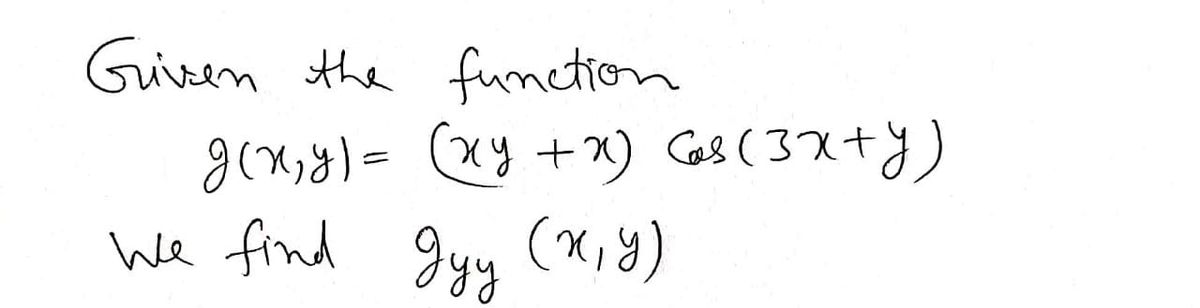 Given the function
g(x,y) = (xy + x) Cos(3x+y)
We find gyy (x,y)